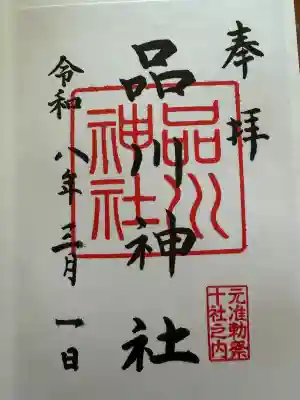 奉拝
品川神社
品川
神社
元准勅祭
十社之内
令和八年三月一日